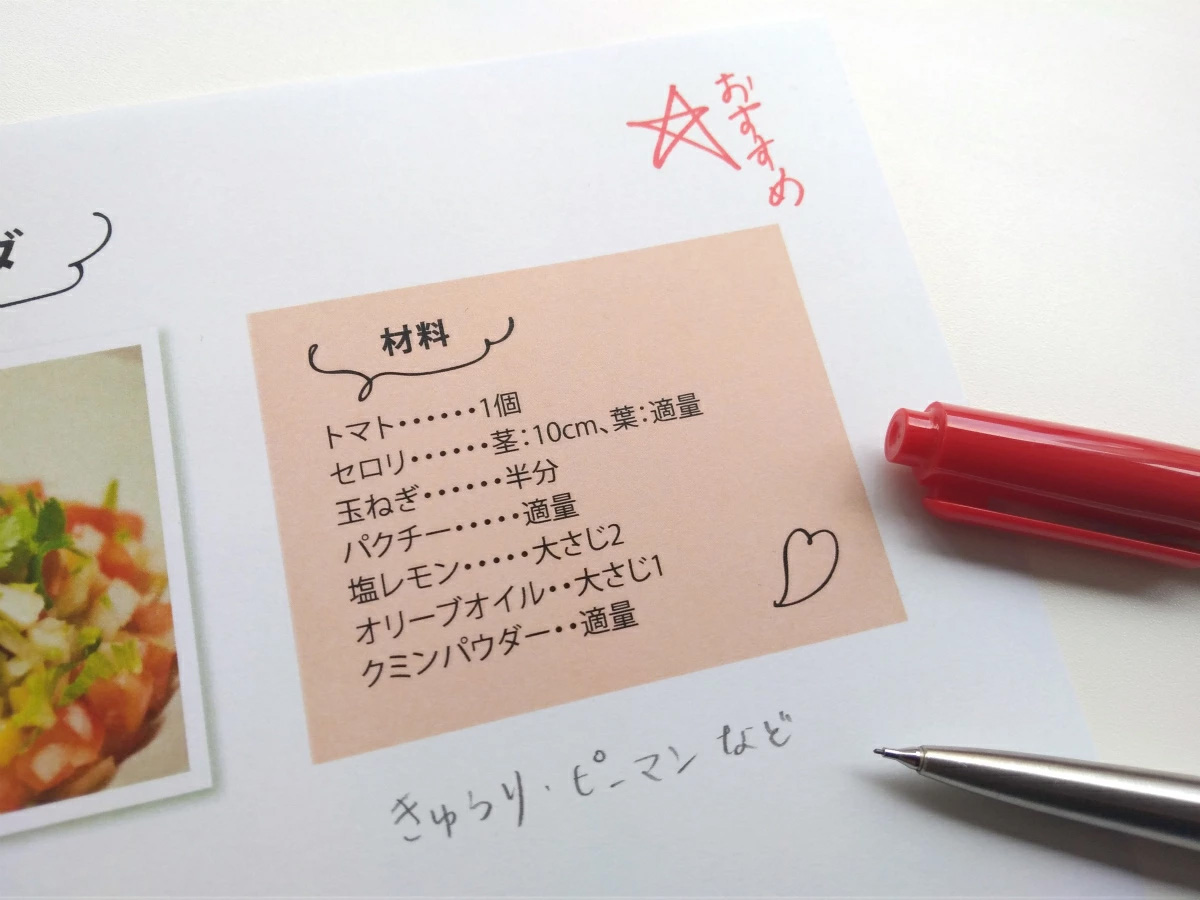 おすすめ
ダ
材料
トマト・・・・・・1個
セロリ・・・・・・茎：10cm、葉：適量
玉ねぎ・・・・・・半分
パクチー・・・・・適量
塩レモン・・・・・大さじ2
オリーブオイル・・大さじ1
クミンパウダー・・適量
きゅうり・ピーマンなど